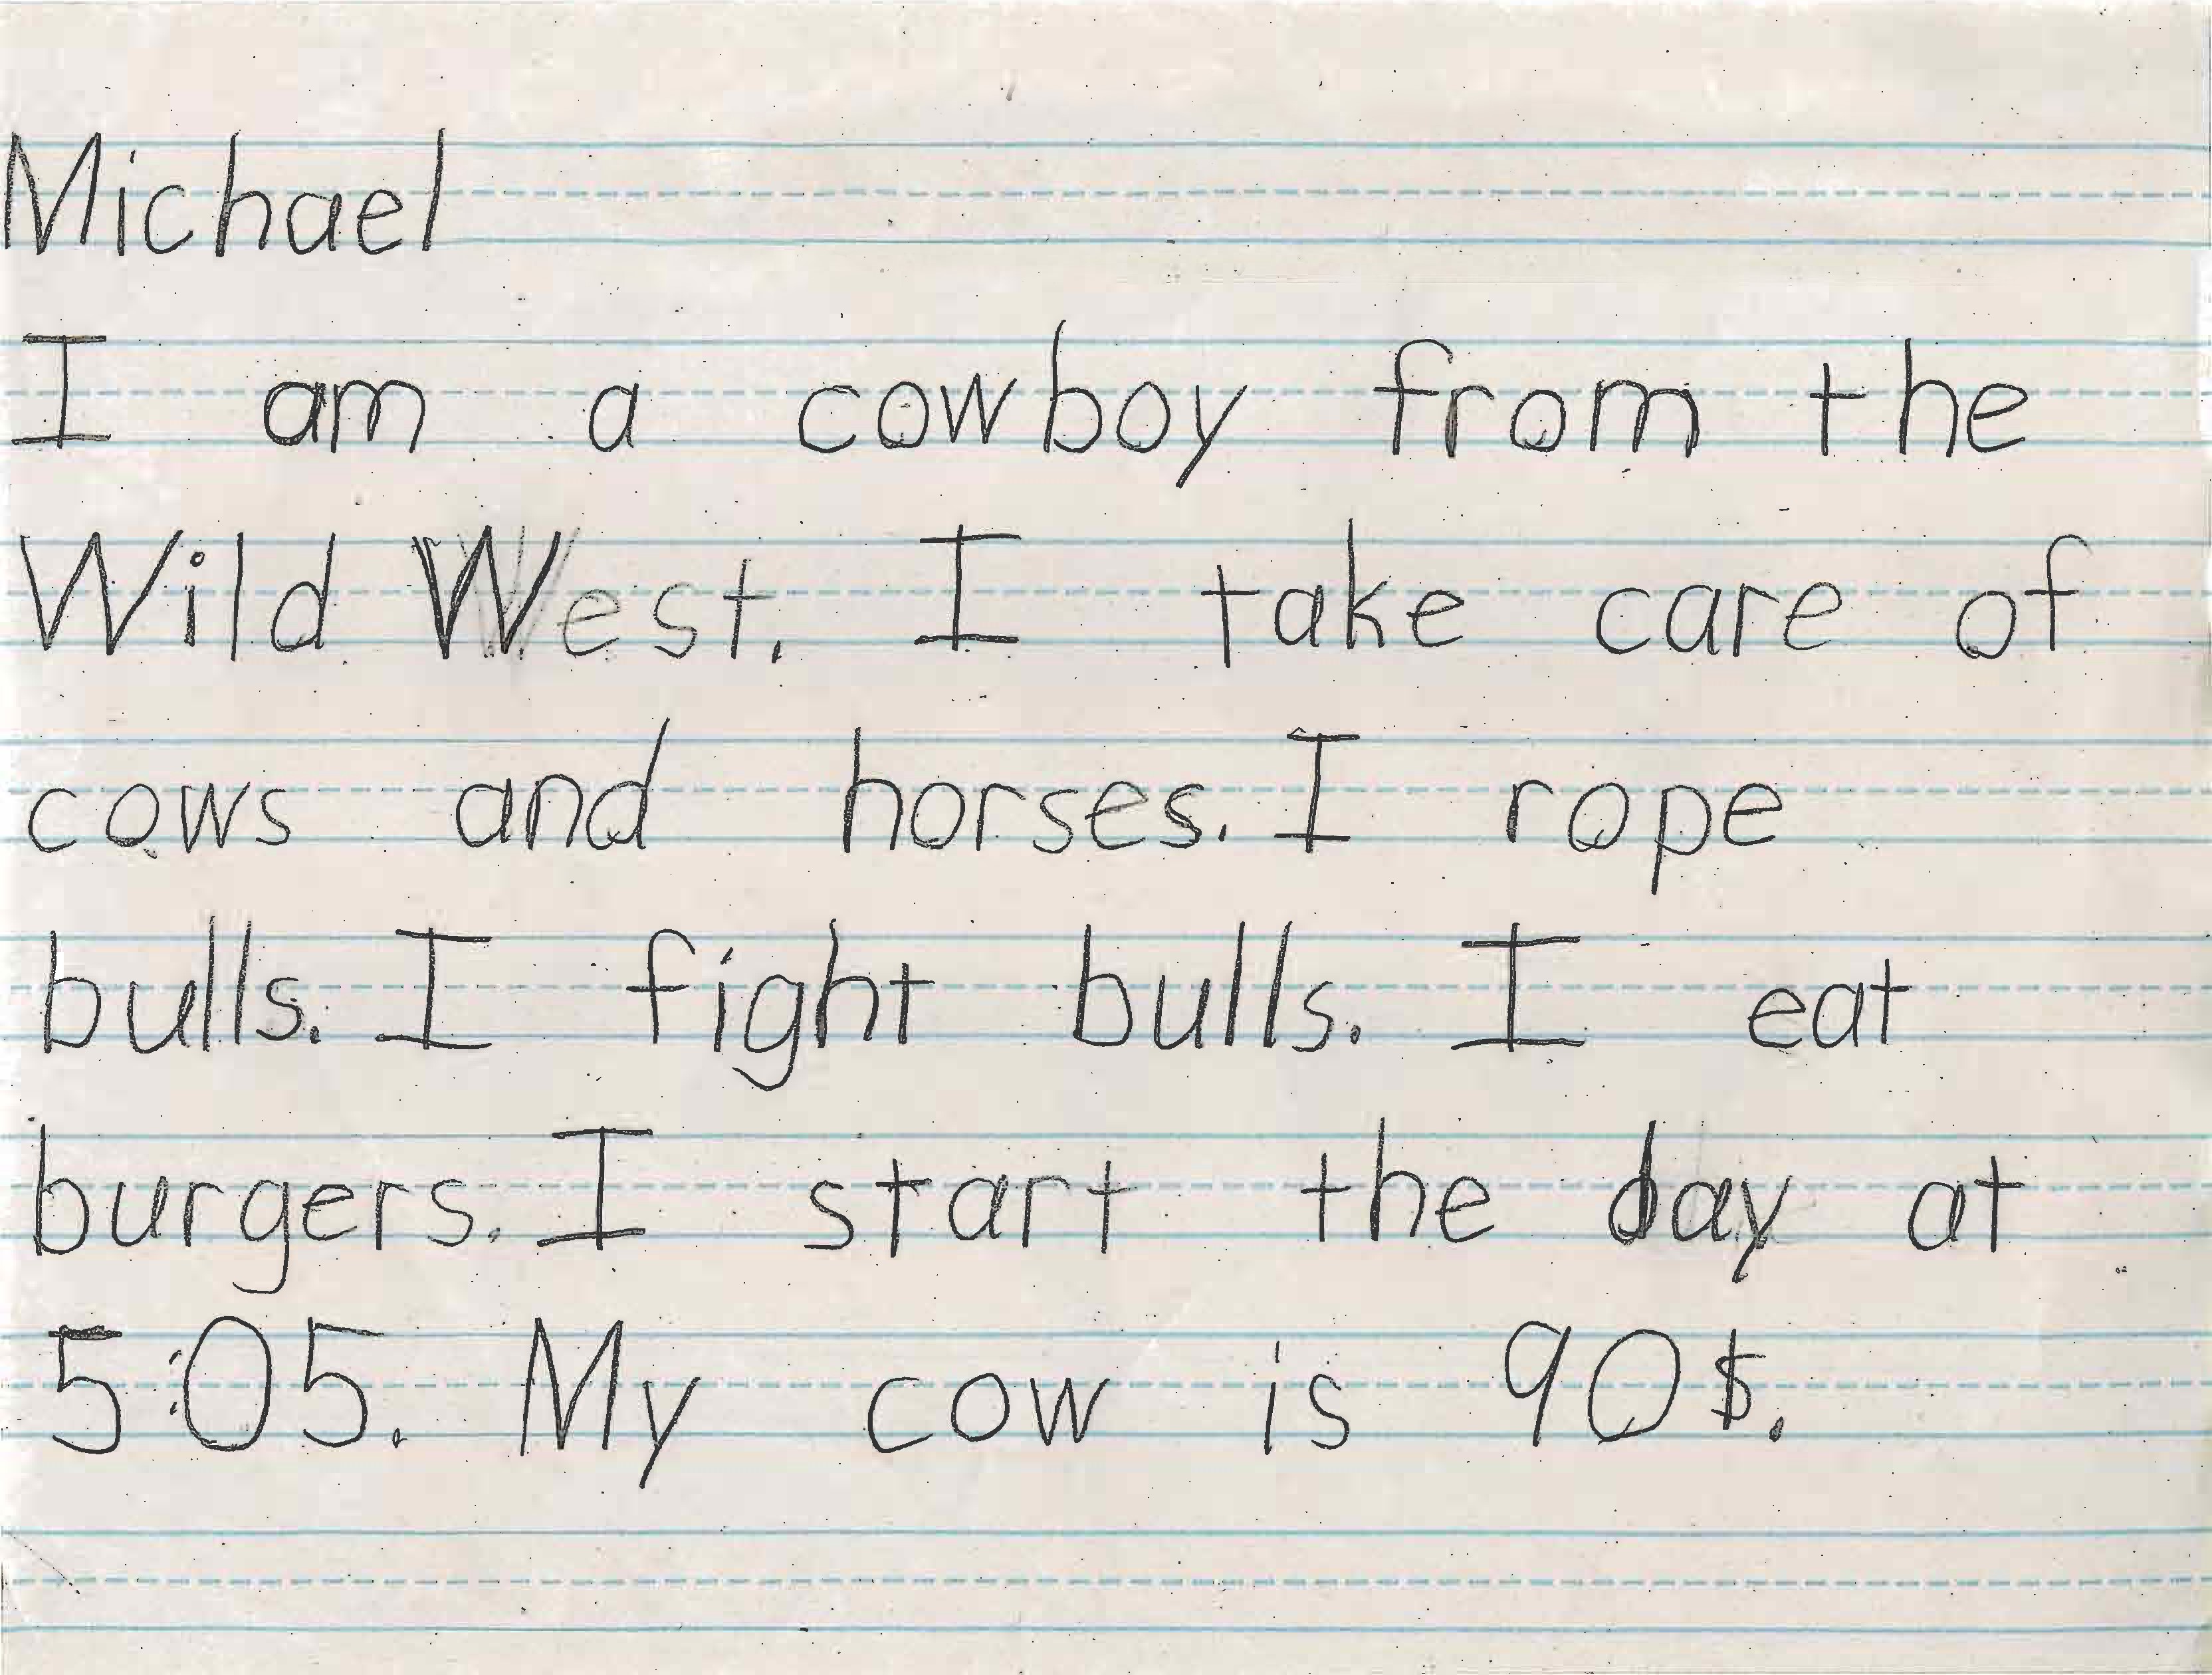 Michael
I am a cowboy from the
Wild West. I take care of
cows and horses. I rope
bulls. I fight bulls. I eat
burgers. I start the day at
5:05. My cow is 90$.